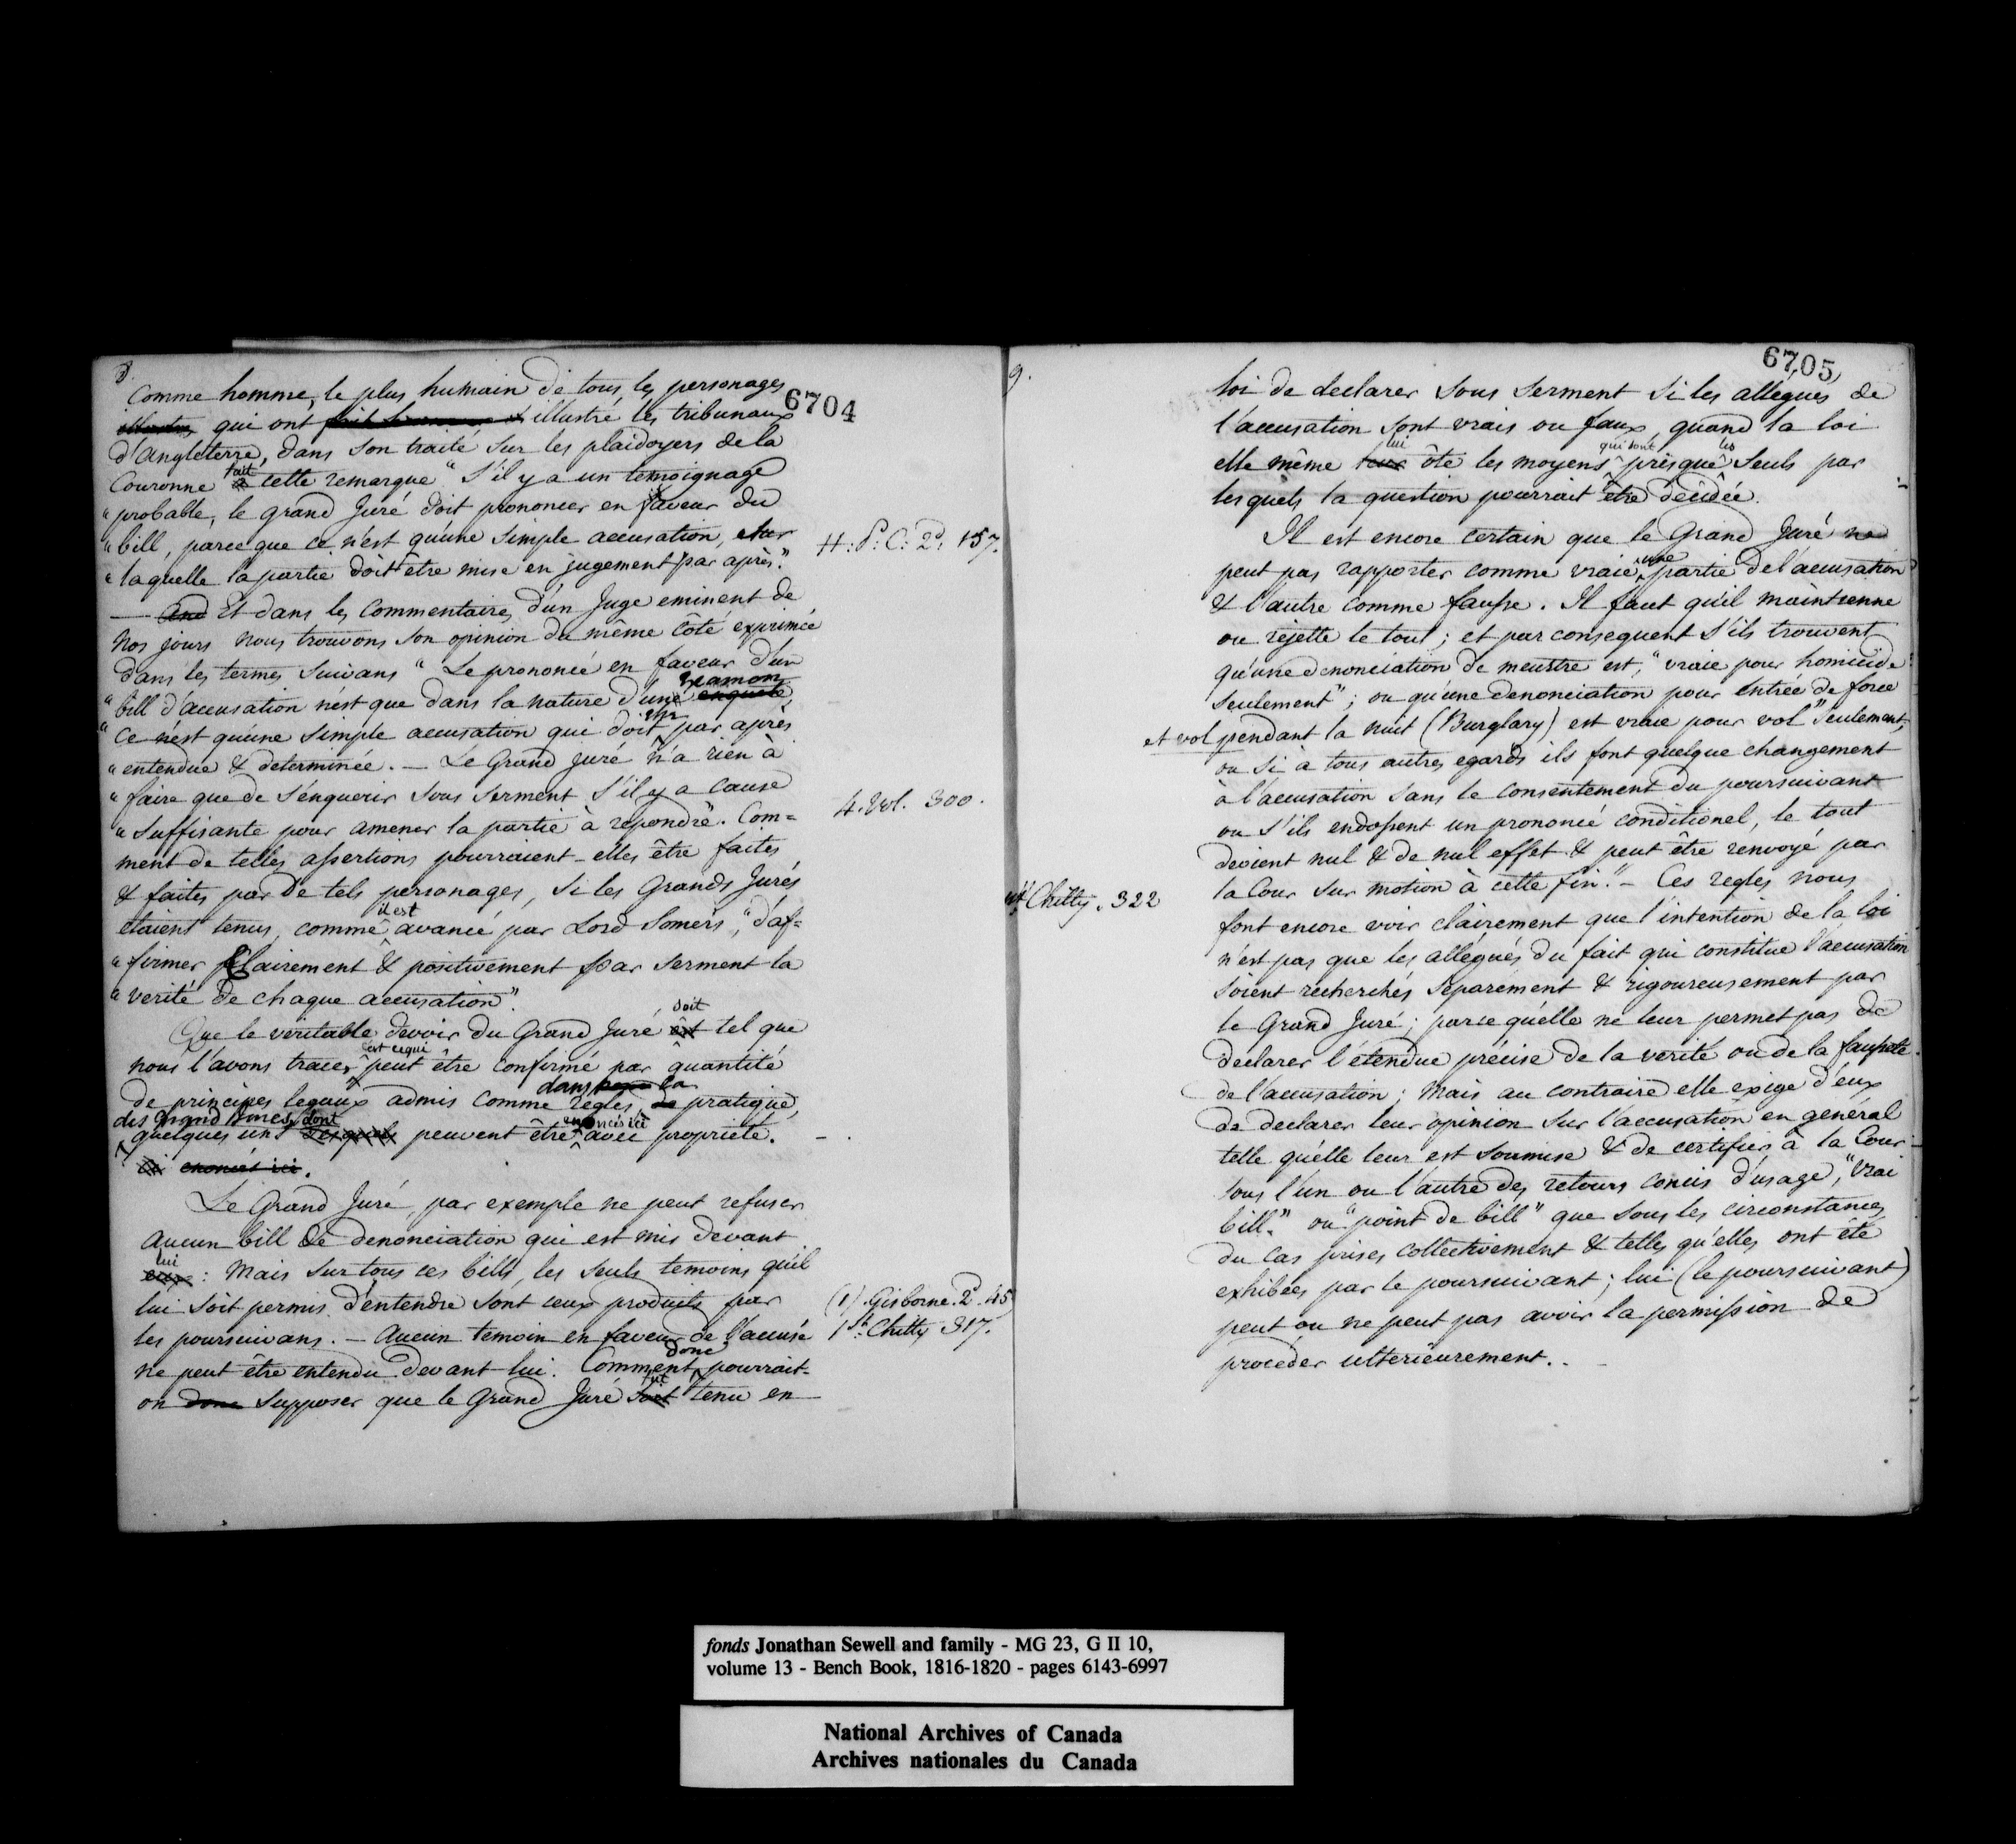 8.
6704
Comme homme, le plus humain de tous les personages
illustres qui ont illustré les tribunaux
d'Angleterre, dans son traité sur les plaidoyers de la
Couronne fait cette remarque "S'il y a un temoignage
"probable, le grand Juré doit prononcer en faveur du
"bill, parce que ce n'est qu'une simple accusation, sur
H: P: C: 2d. 157.
"laquelle la partie doit être mise en jugement par après."
— And Et dans les Commentaires d'un Juge eminent de
nos jours nous trouvons son opinion du même côté exprimée
dans les termes suivans "Le prononcé en faveur d'un
"bill d'accusation n'est que dans la nature d'une examen enquete
"ce n'est qu'une simple accusation qui doit être par après
"entendue & determinée. — Le Grand Juré n'a rien à
"faire que de s'enquerir sous serment s'il y a cause
4. Vol. 300.
"suffisante pour amener la partie à repondre". Com=
ment de telles assertions pourraient-elles être faites
& faites par de tels personages, si les Grands Jurés
étaient tenus, comme il est avancé par Lord Somers, "d'af=
"firmer Clairement & positivement par serment la
"verité de chaque accusation".
Que le véritable devoir du Grand Juré est soit tel que
nous l'avons tracer c'est ce qui peut être confirmé par quantité
de principes legaux admis comme regles, de dans la pratique,
des Grand Jurés, dont
quelques uns lesquels peuvent être enoncés ici avec propriété.
ici enoncés ici.
Le Grand Juré, par exemple ne peut refuser
aucun bill de denonciation qui est mis devant
eux lui: Mais sur tous ces bills, les seuls temoins qu'il
lui soit permis d'entendre sont ceux produits par
(1). Gisborne. 2d. 45
les poursuivans. — Aucun temoin en faveur de l'accusé
1st. Chitty 317.
ne peut être entendu devant lui. Comment donc pourrait-
on donc supposer que le Grand Juré soit fut tenu en
9.
6705
loi de declarer sous serment si les allégués de
l'accusation sont vrais ou faux, quand la loi
elle même leur lui ôte les moyens qui sont présque les seuls par
lesquels la question pourrait être décidée.
Il est encore certain que le Grand Juré ne
peut pas rapporter comme vraie une partie de l'accusation
& l'autre comme fausse. Il faut qu'il maintienne
ou rejette le tout; et par consequent s'ils trouvent
qu'une denonciation de meurtre est, "vraie pour homicide
seulement"; ou qu'une denonciation pour entrée de force
et vol pendant la nuit (Burglary) est vraie pour vol" seulement,
ou si à tous autres egards ils font quelque changement
à l'accusation sans le consentement du poursuivant
ou s'ils endossent un prononcé conditionel, le tout
devient nul & de nul effet & peut être renvoyé par
Chitty. 322
la Cour sur motion à cette fin." — Ces regles nous
font encore voir clairement que l'intention de la loi
n'est pas que les allégués du fait qui constitue l'accusation
soient recherchés séparément & rigoureusement par
le Grand Juré; parce qu'elle ne leur permet pas de
declarer l'étendue précise de la verité ou de la fausseté
de l'accusation; Mais au contraire elle exige d'eux
de declarer leur opinion sur l'accusation en général
telle qu'elle leur est soumise & de certifier à la Cour
sous l'un ou l'autre des retours concis d'usage, "vrai
bill." ou "point de bill" que sous les circonstances
du cas prises collectivement & telles qu'elles ont été
exhibées par le poursuivant; lui (le poursuivant)
peut ou ne peut pas avoir la permission de
procéder ulterieurement. -
fonds Jonathan Sewell and family - MG 23, G II 10,
volume 13 - Bench Book, 1816-1820 - pages 6143-6997
National Archives of Canada
Archives nationales du Canada